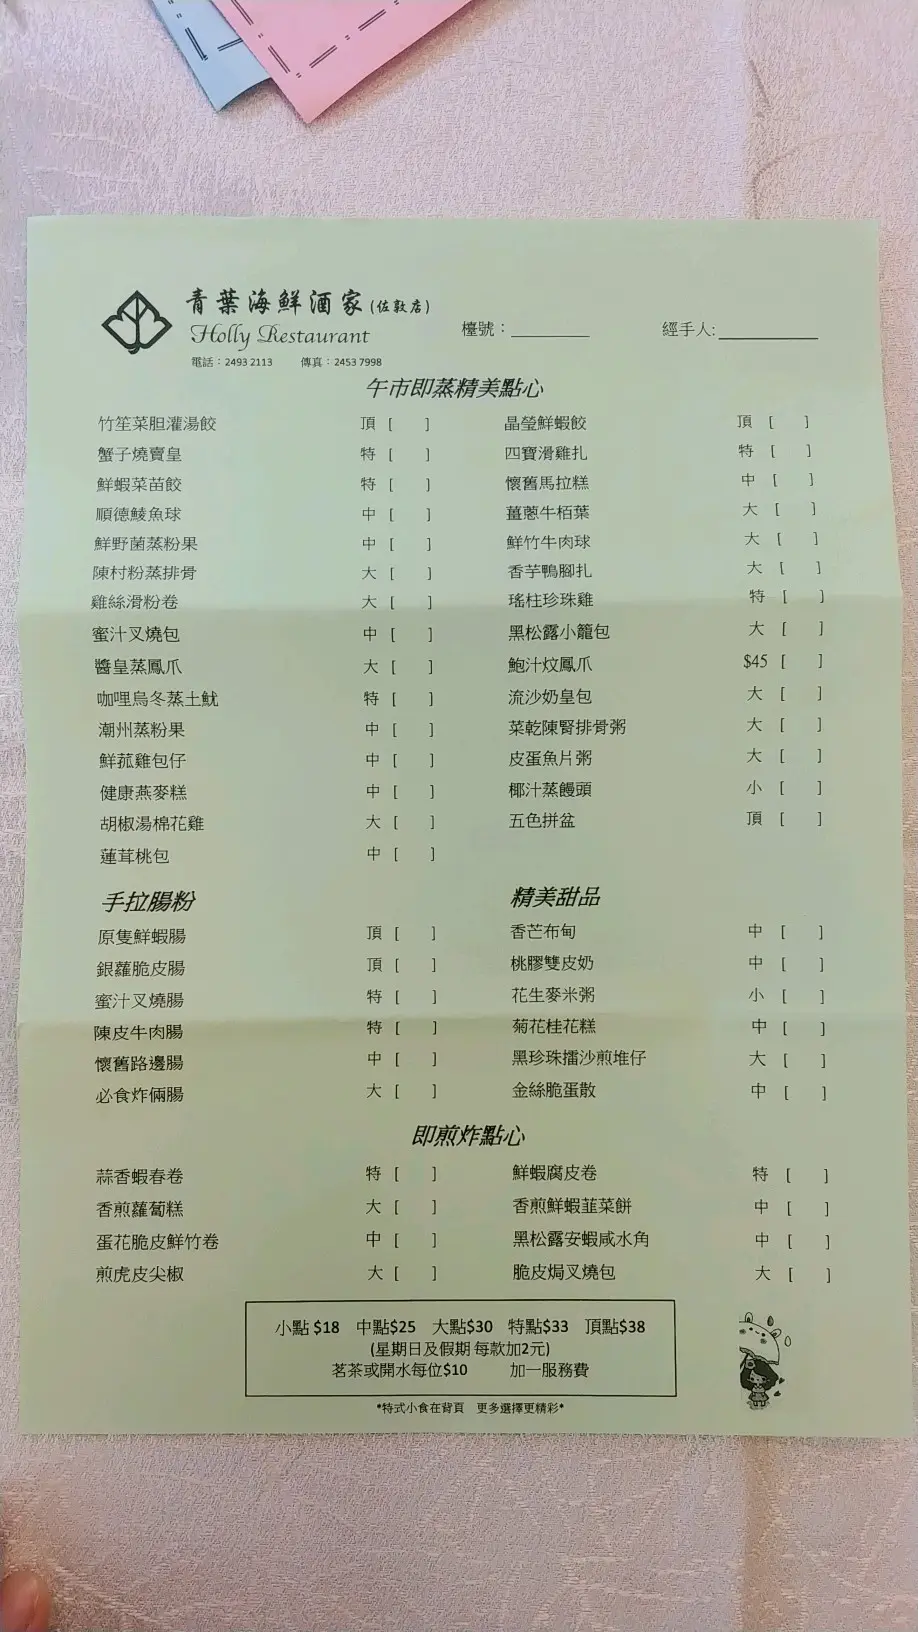 青葉海鮮酒家(佐敦店)
Holly Restaurant
檯號：
經手人:
電話：2493 2113 傳真：2453 7998
午市即蒸精美點心
竹笙菜胆灌湯餃 頂 [ ] 晶瑩鮮蝦餃 頂 [ ]
蟹子燒賣皇 特 [ ] 四寶滑雞扎 特 [ ]
鮮蝦菜苗餃 特 [ ] 懷舊馬拉糕 中 [ ]
順德鯪魚球 中 [ ] 薑蔥牛栢葉 大 [ ]
鮮野菌蒸粉果 中 [ ] 鮮竹牛肉球 大 [ ]
陳村粉蒸排骨 大 [ ] 香芋鴨腳扎 大 [ ]
雞絲滑粉卷 大 [ ] 瑤柱珍珠雞 特 [ ]
蜜汁叉燒包 中 [ ] 黑松露小籠包 大 [ ]
醬皇蒸鳳爪 大 [ ] 鮑汁炆鳳爪 $45 [ ]
咖哩烏冬蒸土魷 特 [ ] 流沙奶皇包 大 [ ]
潮州蒸粉果 中 [ ] 菜乾陳腎排骨粥 大 [ ]
鮮菰雞包仔 中 [ ] 皮蛋魚片粥 大 [ ]
健康燕麥糕 中 [ ] 椰汁蒸饅頭 小 [ ]
胡椒湯棉花雞 大 [ ] 五色拼盆 頂 [ ]
蓮茸桃包 中 [ ]
手拉腸粉 精美甜品
原隻鮮蝦腸 頂 [ ] 香芒布甸 中 [ ]
銀蘿脆皮腸 頂 [ ] 桃膠雙皮奶 中 [ ]
蜜汁叉燒腸 特 [ ] 花生麥米粥 小 [ ]
陳皮牛肉腸 特 [ ] 菊花桂花糕 中 [ ]
懷舊路邊腸 中 [ ] 黑珍珠擂沙煎堆仔 大 [ ]
必食炸倆腸 大 [ ] 金絲脆蛋散 中 [ ]
即煎炸點心
蒜香蝦春卷 特 [ ] 鮮蝦腐皮卷 特 [ ]
香煎蘿蔔糕 大 [ ] 香煎鮮蝦韮菜餅 中 [ ]
蛋花脆皮鮮竹卷 中 [ ] 黑松露安蝦咸水角 中 [ ]
煎虎皮尖椒 大 [ ] 脆皮焗叉燒包 大 [ ]
小點 $18 中點$25 大點$30 特點$33 頂點$38
(星期日及假期 每款加2元)
茗茶或開水每位$10 加一服務費
*特式小食在背頁 更多選擇更精彩*